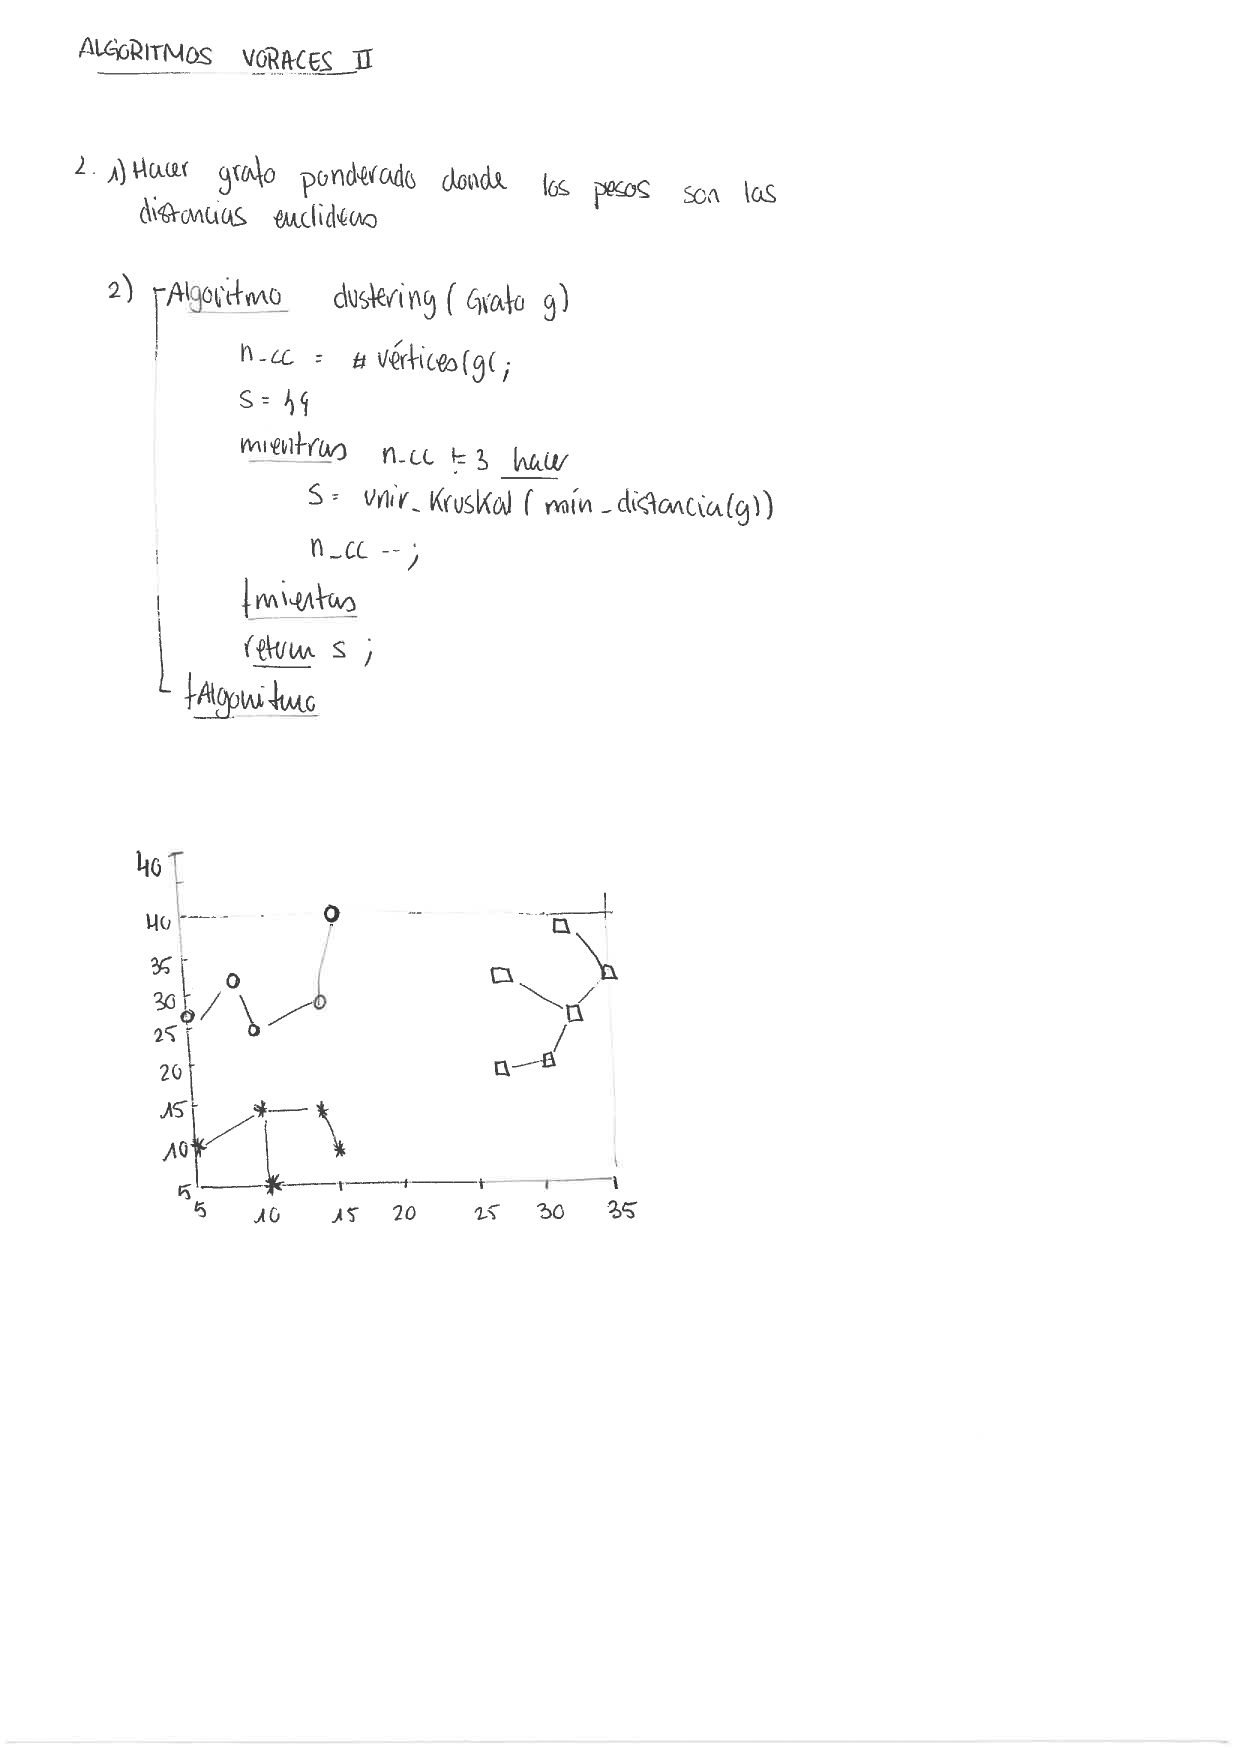 ALGORITMOS VORACES II
2. 1) Hacer grafo ponderado donde los pesos son las
distancias euclideas
2) Algoritmo clustering (Grafo g)
n_cc = # vértices(g(;
S = {}
mientras n_cc != 3 hacer
S = unir_Kruskal (mín_distancia(g))
n_cc --;
fmientas
return s ;
fAlgoritmo
40
40
35
30
25
20
15
10
5
5 10 15 20 25 30 35